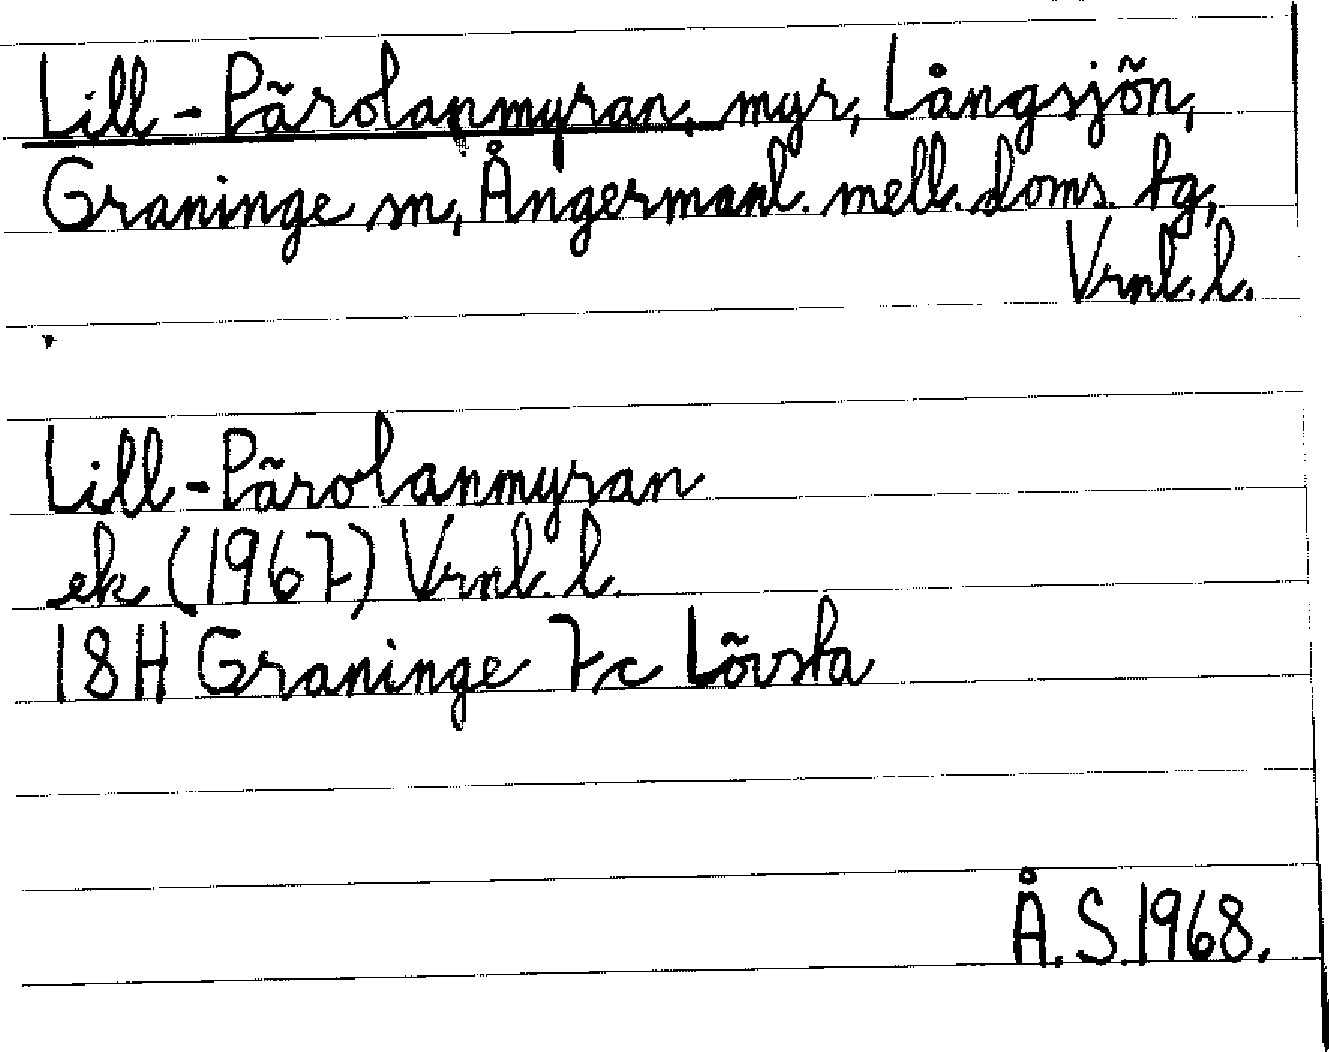 Lill-Pärolanmyran, myr, Långsjön,
Graninge sn, Ångermanl. mell. doms. tg,
Vrnl. l.
Lill-Pärolanmyran
ek (1967) Vrnl. l.
18H Graninge 7c Lövsta
Å. S. 1968.